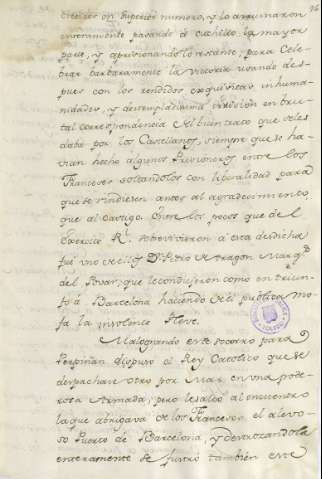 76
en superior numero, y lo arruinaron
enteramente pasando á cuchillo la mayor
parte, y aprisionando lo restante; para Cele-
brar barbaramente la victoria usando des-
pues con los rendidos exquisitas inhuma-
nidades, y destempladisima irrision en bru-
tal correspondencia del buen trato que seles
daba por los Castellanos, siempre que se ha-
vian hecho algunos Prisioneros entre los
Franceses soltandolos con liberalidad para
que se rindiesen antes al agradecimiento,
que al Castigo. Entre los pocos que del
Exercito R.l sobrevivieron á esta desdicha
fue uno de ellos Dn. Pedro de Aragon Marq.s
del Povar, que le condujeron como en triun-
fo á Barcelona haciendo de el publica mo-
fa la insolente Pleve.
Malogrando este socorro para
Perpiñan dispuso el Rey Catolico que se
despachase otro por Mar, en una pode-
rosa Armada; pero le salió al encuentro
la que abrigava de los Franceses el alevo-
so Puerto de Barcelona, y derrotandola
enteramente se frustró tambien este